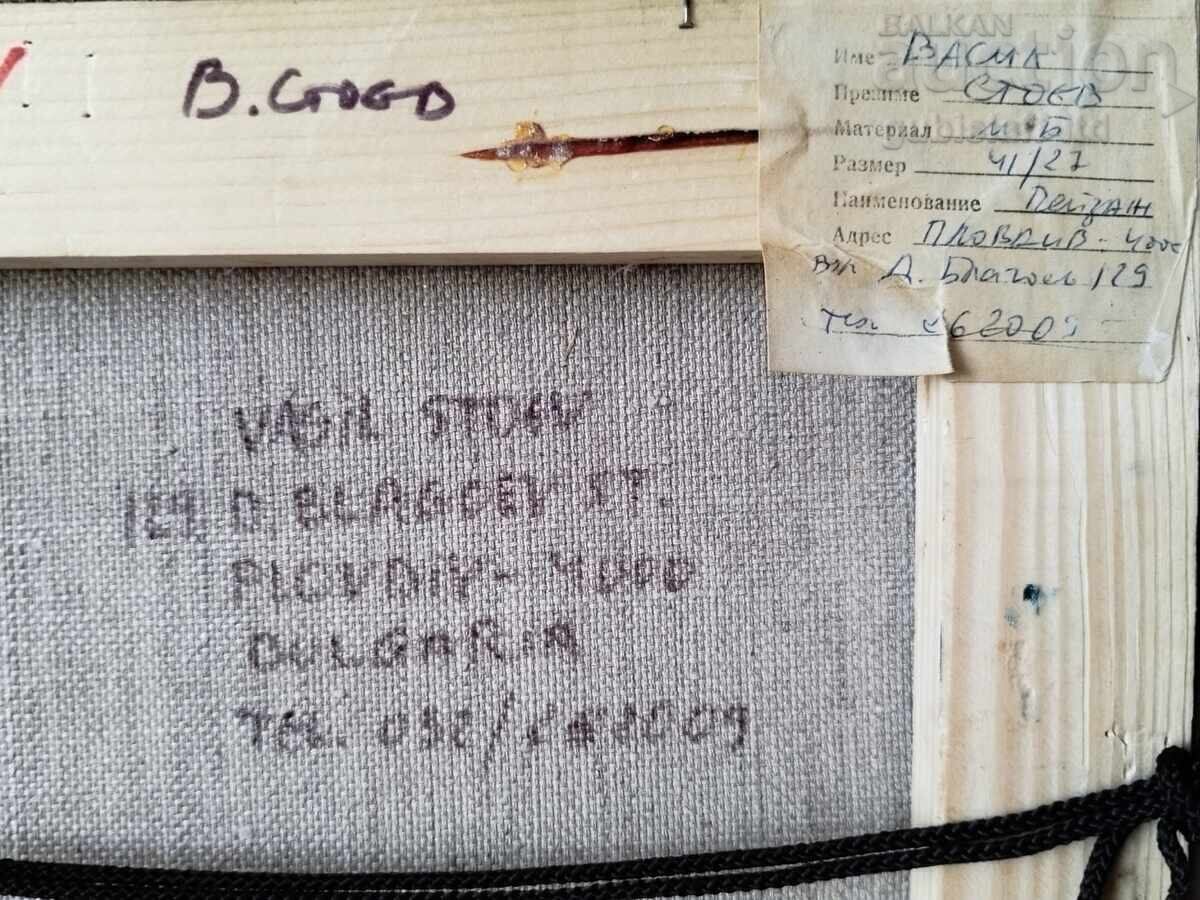 В. Стоев
BALKAN
auction
Име ВАСИЛ
Презиме СТОЕВ
Материал М.Б
Размер 41/27
Наименование Пейзаж
Адрес ПЛОВДИВ - 4000
Д. Благоев 129
Тел
VASIL STOEV
129 D. BLAGOEV ST.
PLOVDIV - 4000
BULGARIA
TEL. 032/